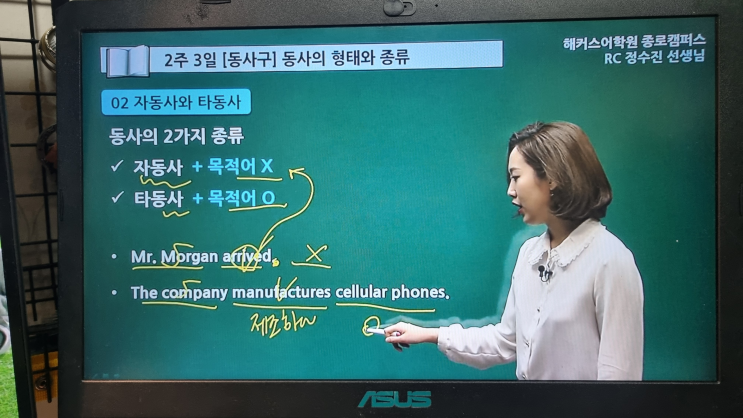 2주 3일 [동사구] 동사의 형태와 종류
해커스어학원 종로캠퍼스
RC 정수진 선생님
02 자동사와 타동사
동사의 2가지 종류
✓ 자동사 + 목적어 X
✓ 타동사 + 목적어 O
• Mr. Morgan arrived. X
S
• The company manufactures cellular phones.
S V
제조하다 O
ASUS